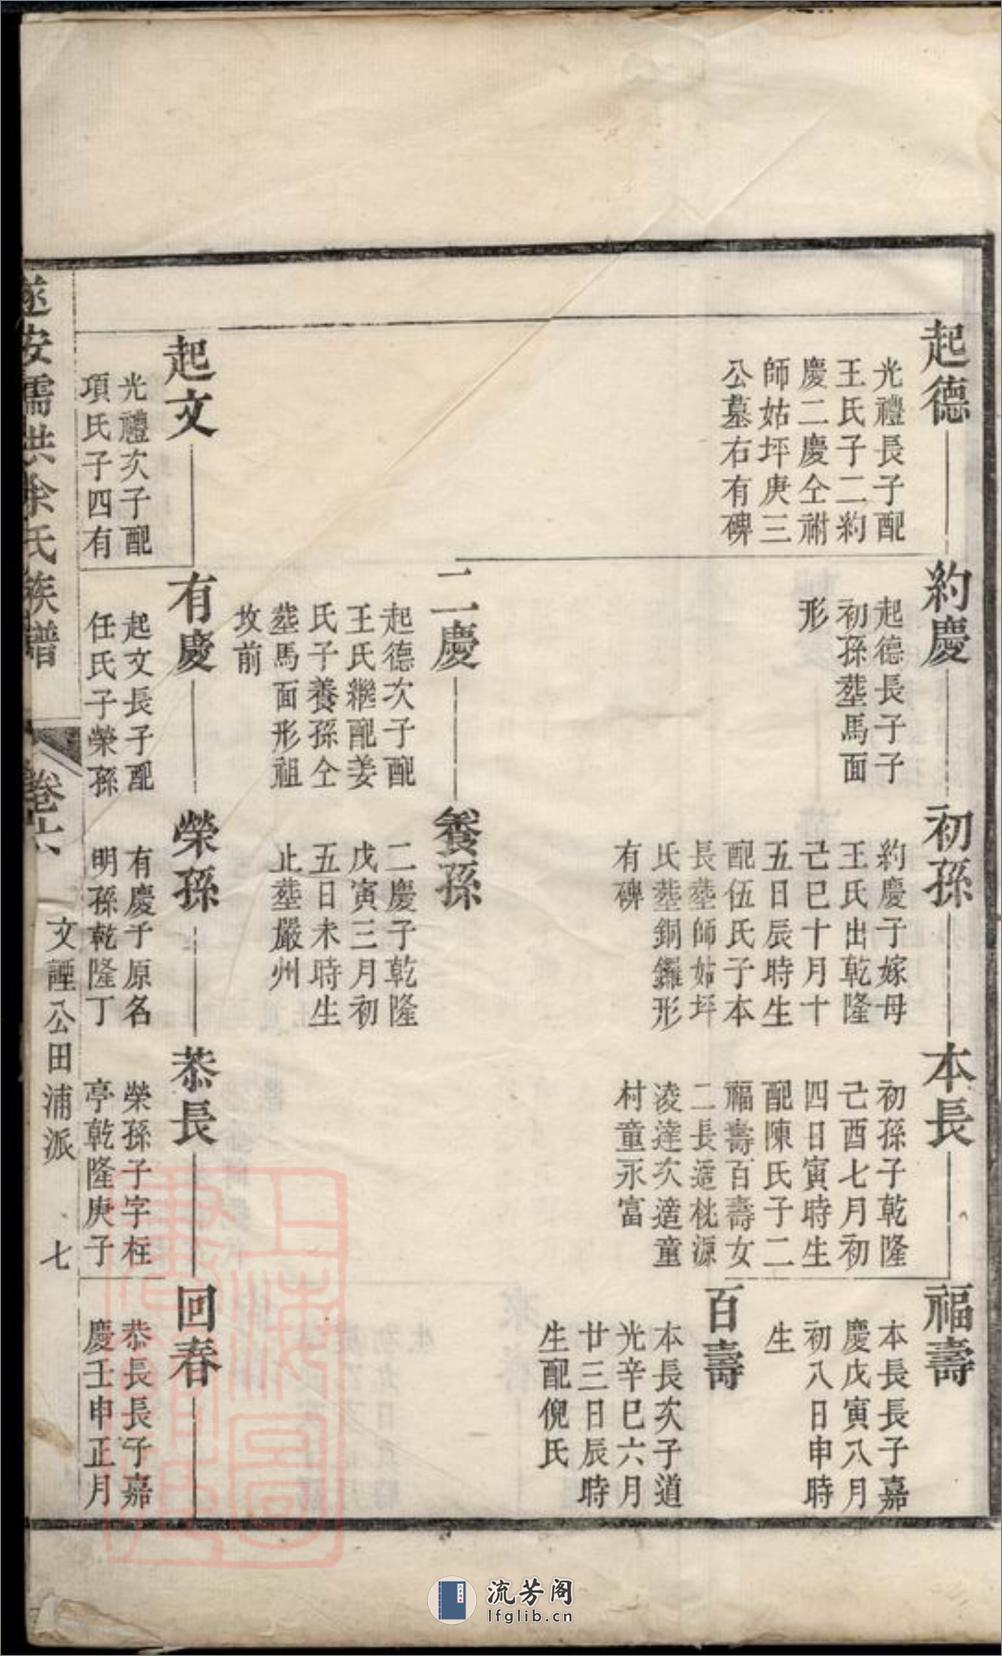 起德
光禮長子配
王氏子二約
慶二慶仝祔
師姑坪庚三
公墓右有碑
起文
光禮次子配
項氏子四有
約慶
起德長子子
初孫塟馬面
形
二慶
起德次子配
王氏繼配姜
氏子養孫仝
塟馬面形祖
坟前
有慶
起文長子配
任氏子榮孫
初孫
約慶子嫁母
王氏出乾隆
己巳十月十
五日辰時生
配伍氏子本
長塟師姑坪
氏塟銅鑼形
有碑
養孫
二慶子乾隆
戊寅三月初
五日未時生
止塟嚴州
榮孫
有慶子原名
明孫乾隆丁
本長
初孫子乾隆
己酉七月初
四日寅時生
配陳氏子二
福壽百壽女
二長適桃源
凌達次適童
村童永富
恭長
榮孫子字柱
亭乾隆庚子
福壽
本長長子嘉
慶戊寅八月
初八日申時
生
百壽
本長次子道
光辛巳六月
廿三日辰時
生配倪氏
回春
恭長長子嘉
慶壬申正月
遂安儒洪余氏族譜
卷六
文諲公田浦派
七
上海圖書館藏
流芳阁
lfglib.cn